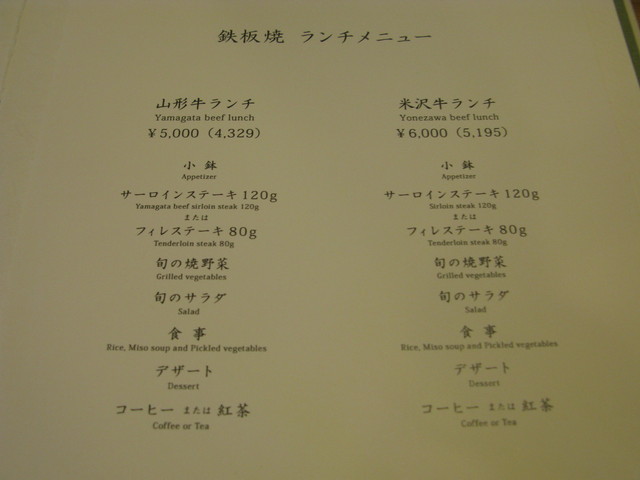 鉄板焼 ランチメニュー
山形牛ランチ
Yamagata beef lunch
¥5,000 (4,329)
小 鉢
Appetizer
サーロインステーキ 120g
Yamagata beef sirloin steak 120g
または
フィレステーキ 80g
Tenderloin steak 80g
旬の焼野菜
Grilled vegetables
旬のサラダ
Salad
食 事
Rice, Miso soup and Pickled vegetables
デザート
Dessert
コーヒー または 紅茶
Coffee or Tea
米沢牛ランチ
Yonezawa beef lunch
¥6,000 (5,195)
小 鉢
Appetizer
サーロインステーキ 120g
Sirloin steak 120g
または
フィレステーキ 80g
Tenderloin steak 80g
旬の焼野菜
Grilled vegetables
旬のサラダ
Salad
食 事
Rice, Miso soup and Pickled vegetables
デザート
Dessert
コーヒー または 紅茶
Coffee or Tea